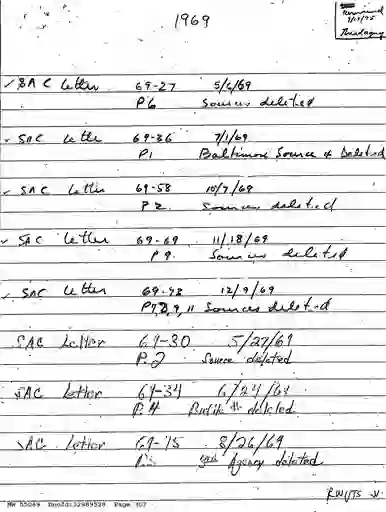 1969
SAC Letter 69-27 5/6/69
P6 Sources deleted
SAC Letter 69-36 7/1/69
P1 Baltimore Source & Deleted
SAC Letter 69-58 10/7/69
P2 Sources deleted
SAC Letter 69-69 11/18/69
P9. Sources deleted
SAC Letter 12/9/69
P7,8,9,11 Sources deleted
SAC Letter 69-30 5/27/69
P.2 Source deleted
SAC Letter 69-34 6/24/69
P.4 deleted
SAC Letter 8/26/69
Agency deleted
NW 55069 DocId:32989528 Page 307